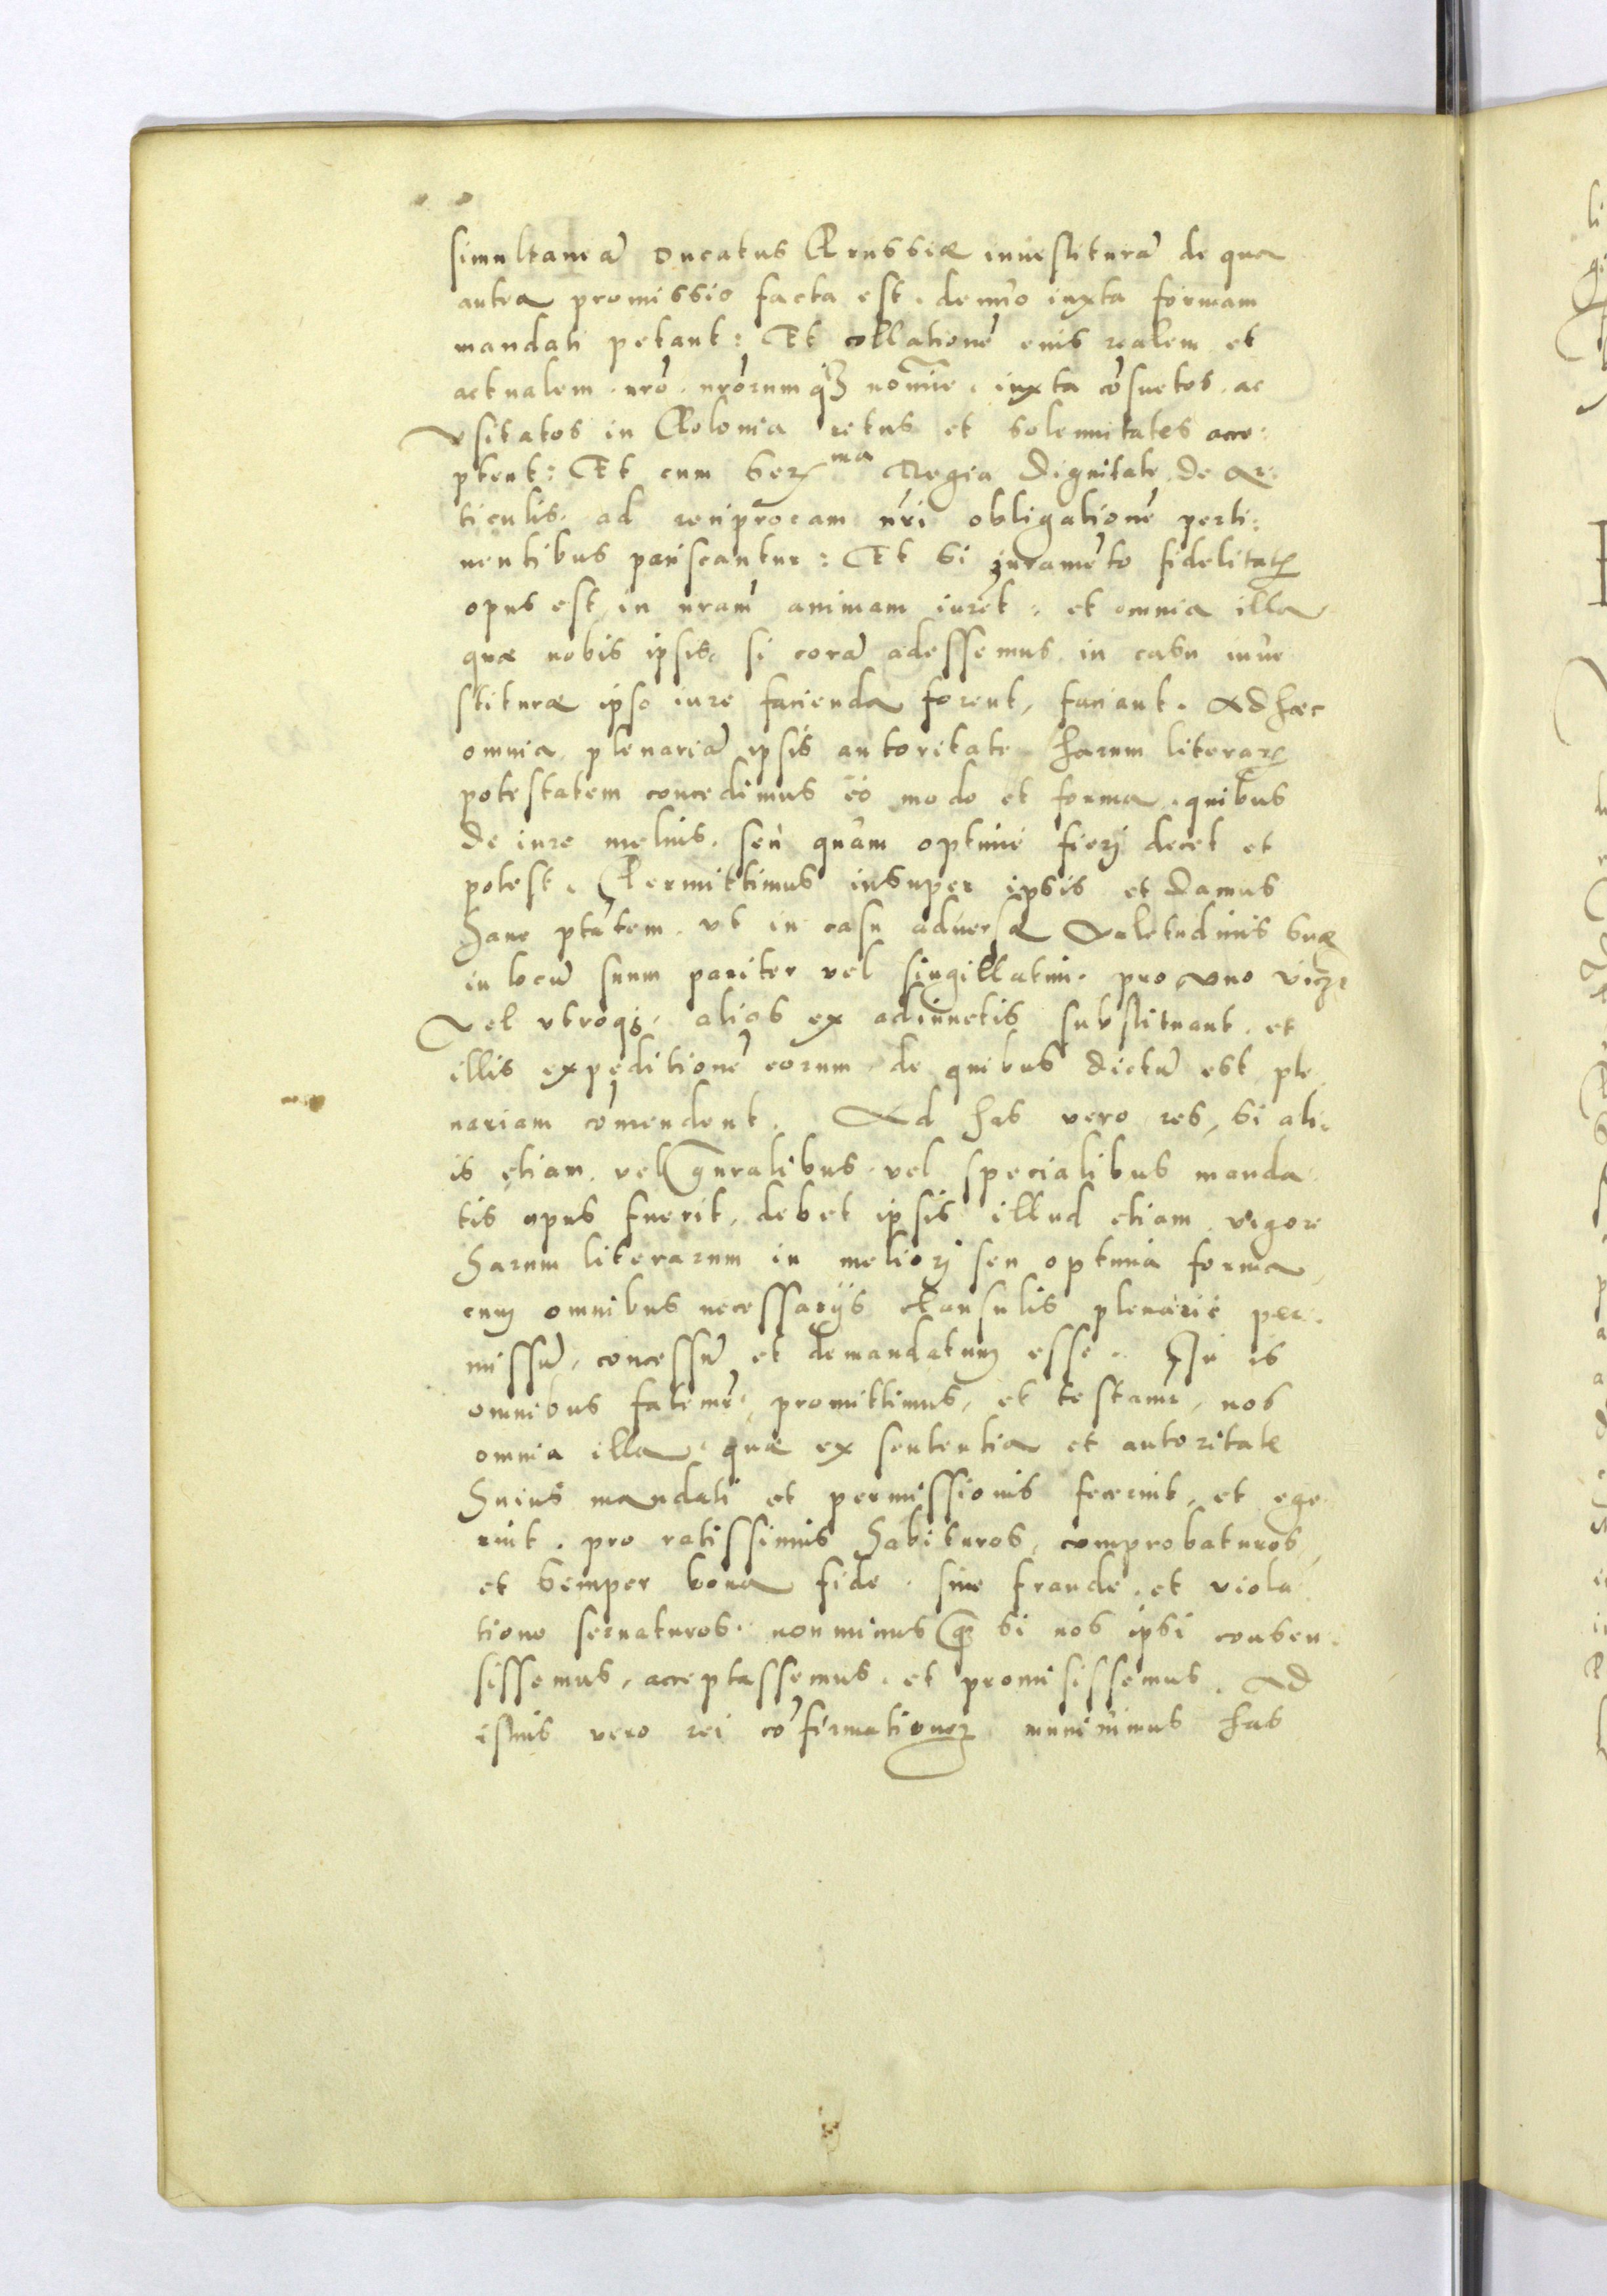 simultaneā Ducatus Prussiæ inuestiturā de qua
antea promissio facta est. denuo iuxta formam
mandati petant: Et collationē eius realem et
actualem. nrō. nrōrumq́ʒ noīe. iuxta cōsuetos. ac
vsitatos in Polonia ritus et solennitates acce:
ptent: Et cum Serma Regia Dignitate de Ar:
ticulis. ad reciprocam nr̄i obligationē perti:
nentibus paciscantur: Et si iuramēto fidelitatis
opus est in nram̄ animam iuret: et omnia illa
quæ nobis ipsis. si corā adessemus in casu inue
stituræ ipso iure facienda forent, faciant. Ad hæc
omnia plenariā ipsis autoritate harum literarū
potestatem concedimus eo modo et forma. quibus
de iure melius. seu quam optime fierj decet et
potest. Permittimus insuper ipsis et damus
hanc ptātem. vt in casu aduersæ Valetudinis suæ
in locū suum pariter vel singillatim. pro vno
Vel vtroqʒ. alios ex adiunctis substituant. et
illis expeditionē eorum de quibus dictū est ple
nariam cōmendent. Ad has vero res, si ali:
is etiam. vel gn̄ralibus. vel specialibus manda
tis opus fuerit, debet ipsis illud etiam. vigore
harum literarum in meliorj seu optima forma,
cum omnibus necessarijs clausulis plenarie per.
missū, concessū et demandatum esse. In is
omnibus fatemr̄, promittimus, et testamr̄, nos
omnia illa. quæ ex sententia et autoritate
huius mandati et permissionis fecerint, et ege
rint. pro ratissimis habituros, comprobaturos,
et semper bona fide. sine fraude. et viola
tione seruaturos. non minus qȝ si nos ipsi consen.
sissemus, acceptassemus. et promisissemus. Ad
istius vero rei cōfirmationem munīuimus has